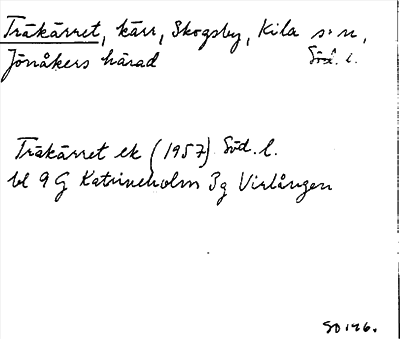 Träkärret, kärr, Skogsby, Kila sn,
Jönåkers härad Söd. l.
Träkärret ek (1957) Söd. l.
bl 9 G Katrineholm 3g Virlången
SO 146.